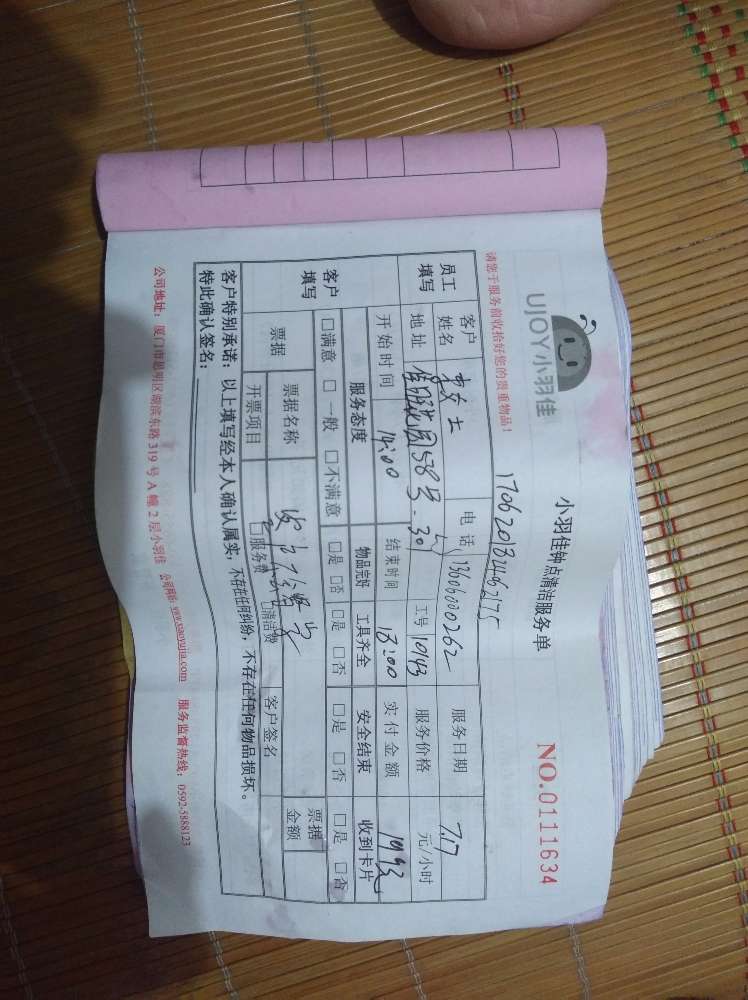 UJOY小羽佳
小羽佳钟点清洁服务单
NO.0111634
请您于服务前收拾好您的贵重物品！
员工填写
客户姓名 李女士 电话 13606000262 服务日期 7.17
地址 58号-301 工号 10143 服务价格 元/小时
开始时间 14:00 结束时间 18:00 实付金额
客户填写
服务态度 物品完好 工具齐全 安全结束 收到卡片
□满意 □一般 □不满意 □是 □否 □是 □否 □是 □否 □是 □否
票据 票据名称 票据金额
开票项目 □服务费 □清洁费 客户签名
客户特别承诺：以上填写经本人确认属实，不存在任何纠纷，不存在任何物品损坏。
特此确认签名：
公司地址：厦门市思明区湖滨东路 319 号 A 幢 2 层小羽佳 公司网站：www.xiaoyujia.com 服务监督热线：0592-5888123